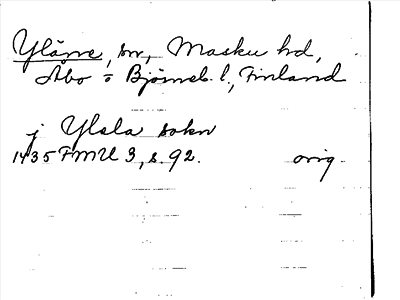 Yläne, sn, Masku hd,
Åbo o Björneb. l., Finland
j Ylala sokn
1435 FMU 3, s. 92. orig